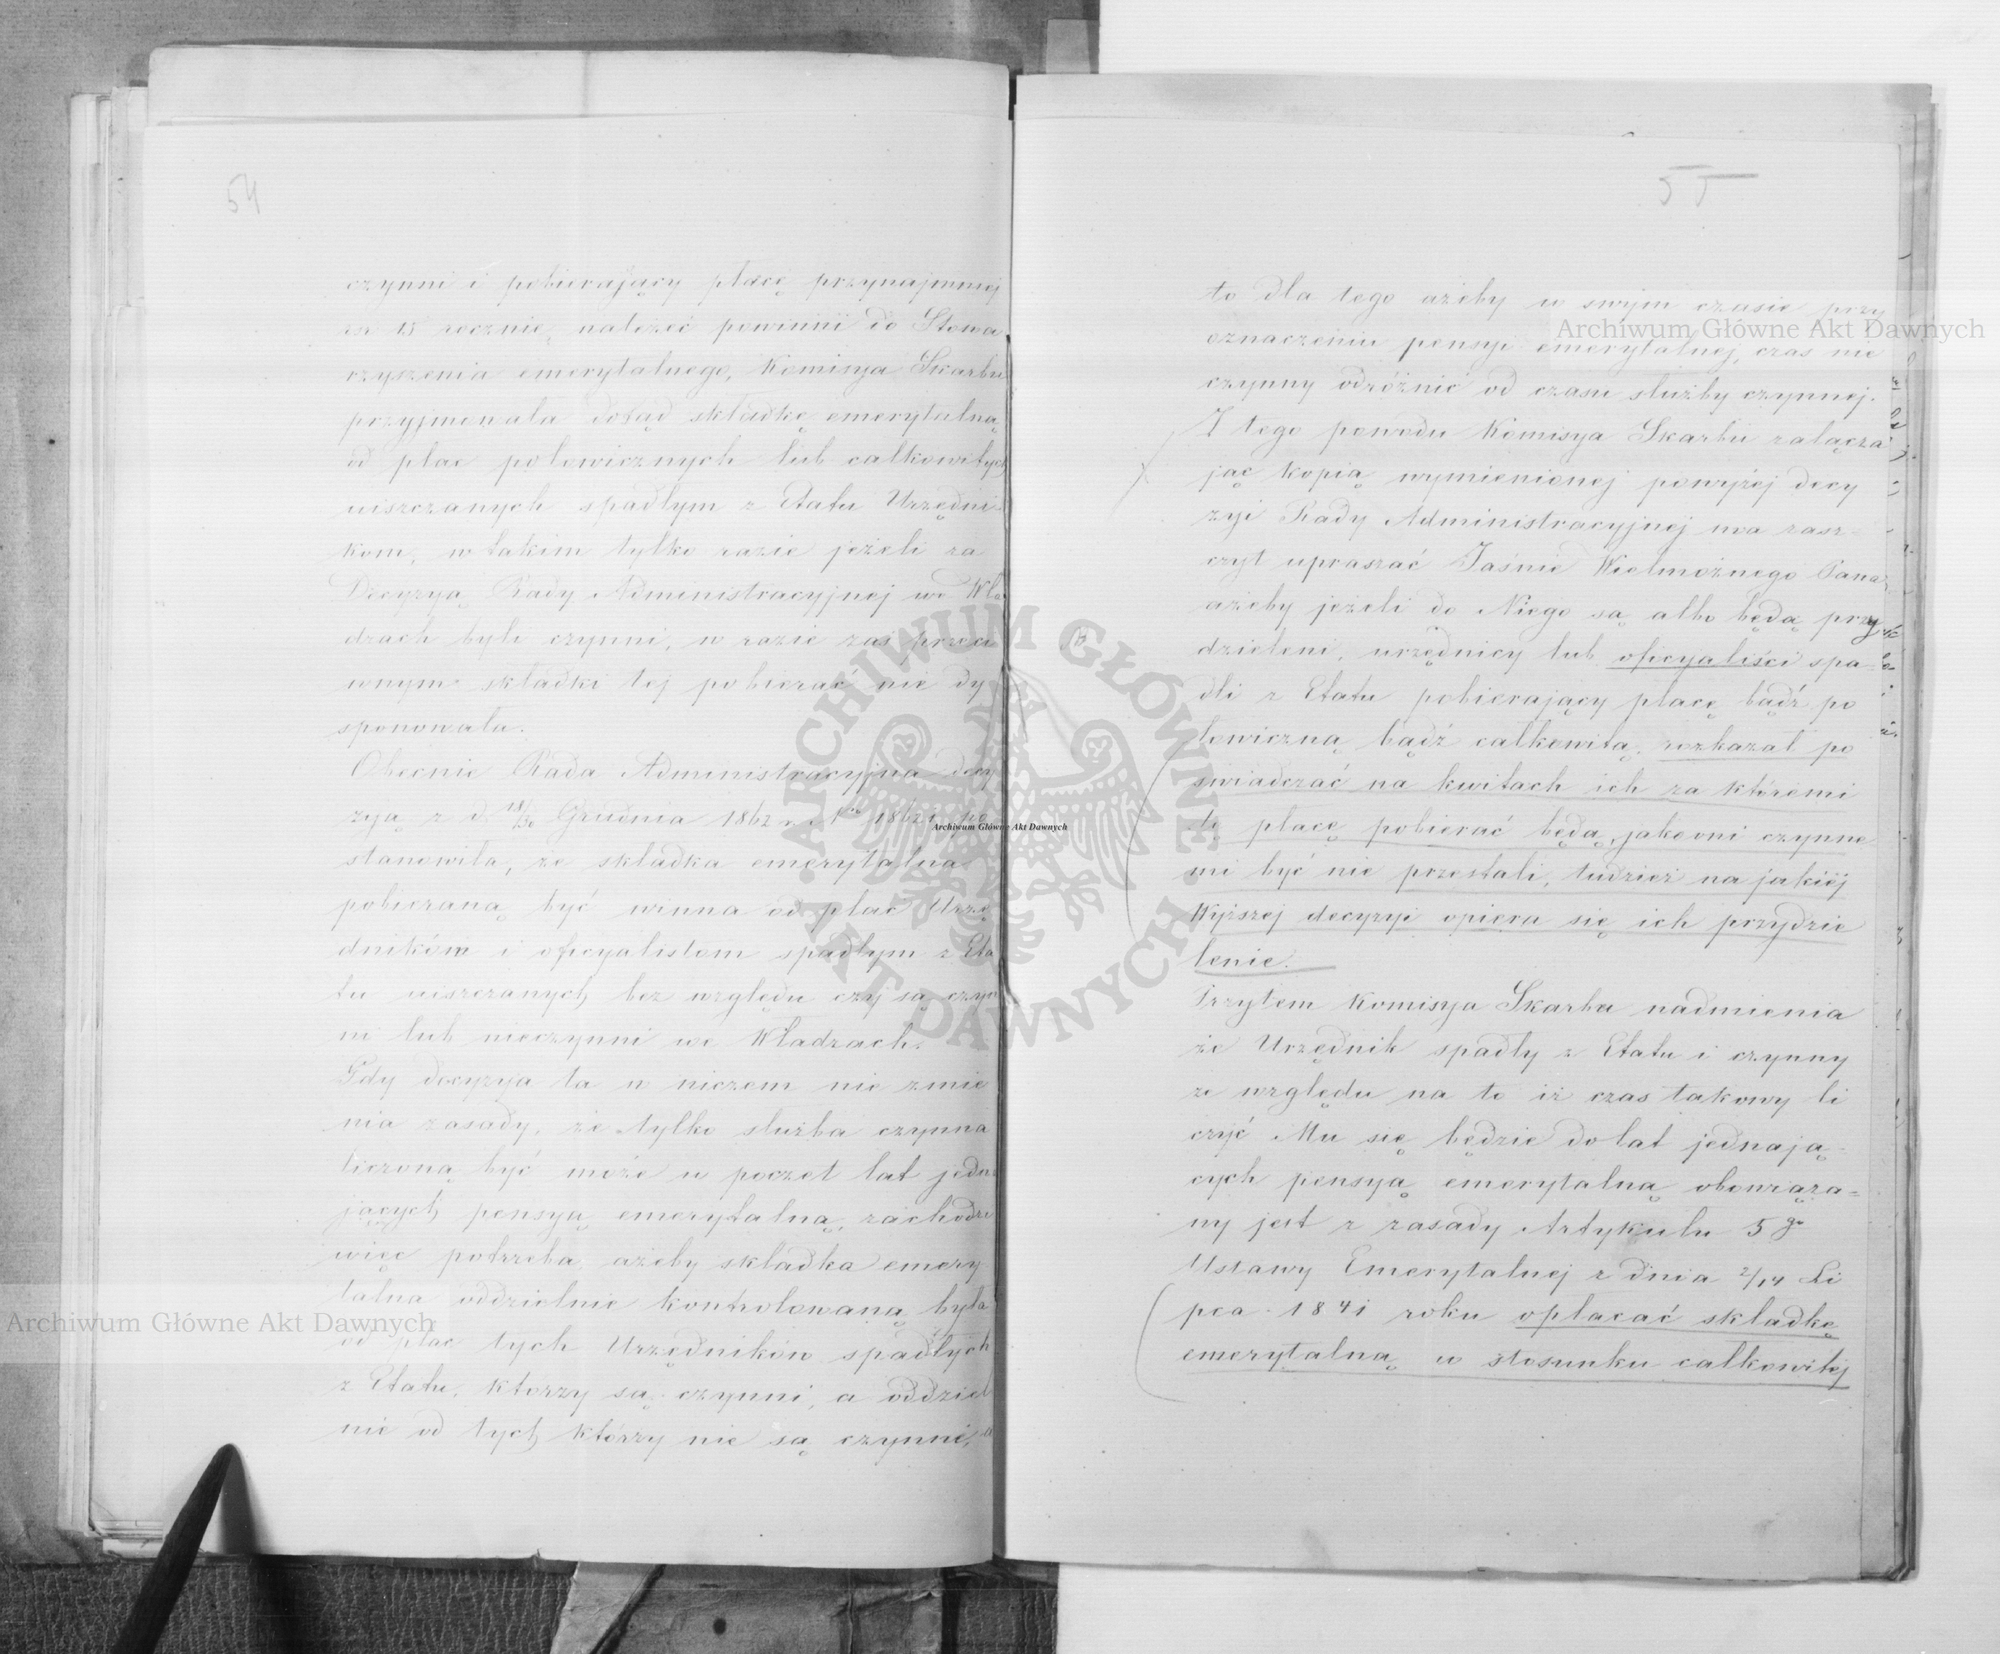 54
czynni i pobierający płacę przynajmniej
rsr 15 rocznie, należeć powinni do Stowa
rzyszenia emerytalnego, Komisya Skarbu
przyjmowała dotąd składkę emerytalną
od płac połowicznych lub całkowitych
uiszczanych spadłym z Etatu Urzędni-
kom, w takim tylko razie jeżeli za
Decyzyą Rady Administracyjnej we Wła
dzach byli czynni, w razie zaś przeci
wnym składki tej pobierać nie dy
sponowała.
Obecnie Rada Administracyjna decy
zyą z d. 18/30 Grudnia 1862 r. No 18621 po
stanowiła, że składka emerytalna
pobieraną być winna od płac Urzę
dników i oficyalistom spadłym z Eta
tu uiszczanych bez względu czy są czyn
ni lub nieczynni we Władzach.
Gdy decyzya ta w niczem nie zmie
nia zasady, że tylko służba czynna
liczoną być może w poczet lat jedna
jących pensyą emerytalną, zachodzi
więc potrzeba, ażeby składka emery
talna oddzielnie kontrolowaną była
od płac tych Urzędników spadłych
z Etatu, którzy są czynni, a oddziel
nie od tych którzy nie są czynni, a
55
to dla tego ażeby w swym czasie przy
oznaczeniu pensyi emerytalnej, czas nie
czynny odróżnić od czasu służby czynnej.
Z tego powodu Komisya Skarbu załącza
jąc kopią wymienionej powyżej decy
zyi Rady Administracyjnej ma zasz-
czyt upraszać Jaśnie Wielmożnego Pana
ażeby jeżeli do Niego są albo będą przy
dzieleni, urzędnicy lub oficyaliści spa-
dli z Etatu pobierający płacę bądź po
łowiczną bądź całkowitą, rozkazał po
świadczać na kwitach ich za któremi
tę płacę pobierać będą, jako oni czynne
mi być nie przestali, tudzież na jakiéj
Wyższej decyzyi opiera się ich przydzie
lenie.
Przytem Komisya Skarbu nadmienia
że Urzędnik spadły z Etatu i czynny
ze względu na to iż czas takowy li
czyć Mu się będzie do lat jednają-
cych pensyą emerytalną obowiąza=
ny jest z zasady Artykułu 5go
Ustawy Emerytalnej z dnia 2/14 Li
pca 1841 roku opłacać składkę
emerytalną w stosunku całkowitéj
Archiwum Główne Akt Dawnych
Archiwum Główne Akt Dawnych
Archiwum Główne Akt Dawnych
ARCHIWUM GŁÓWNE AKT DAWNYCH